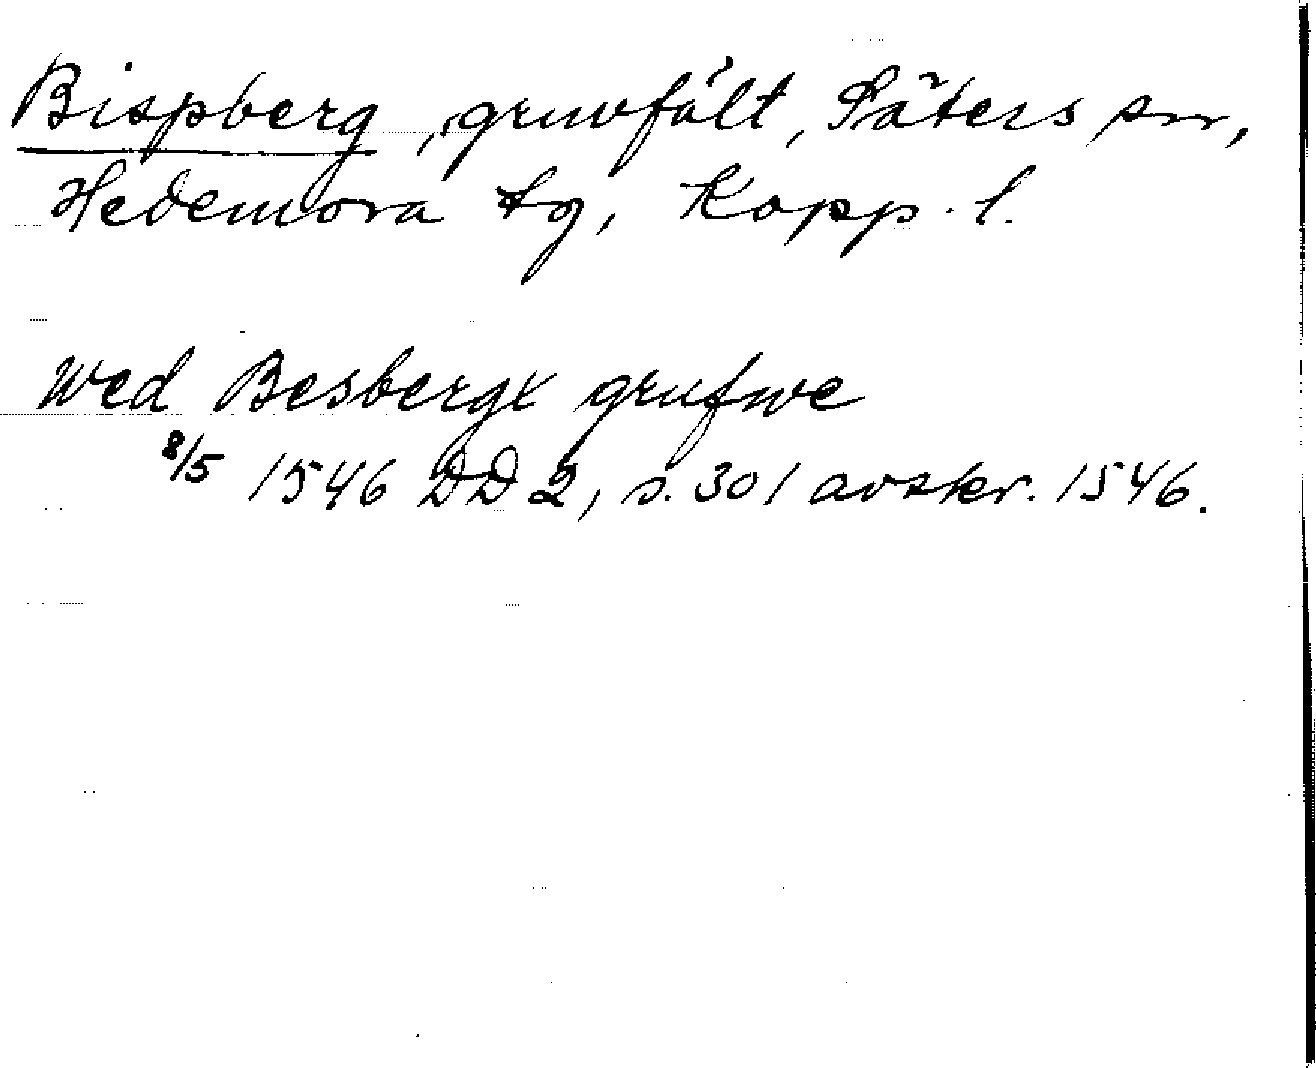 Bispberg, gruvfält, Säters sn,
Hedemora tg, Kopp. l.
wed Besbergx grufwe
8/5 1546 DD 2, s. 301 avskr. 1546.